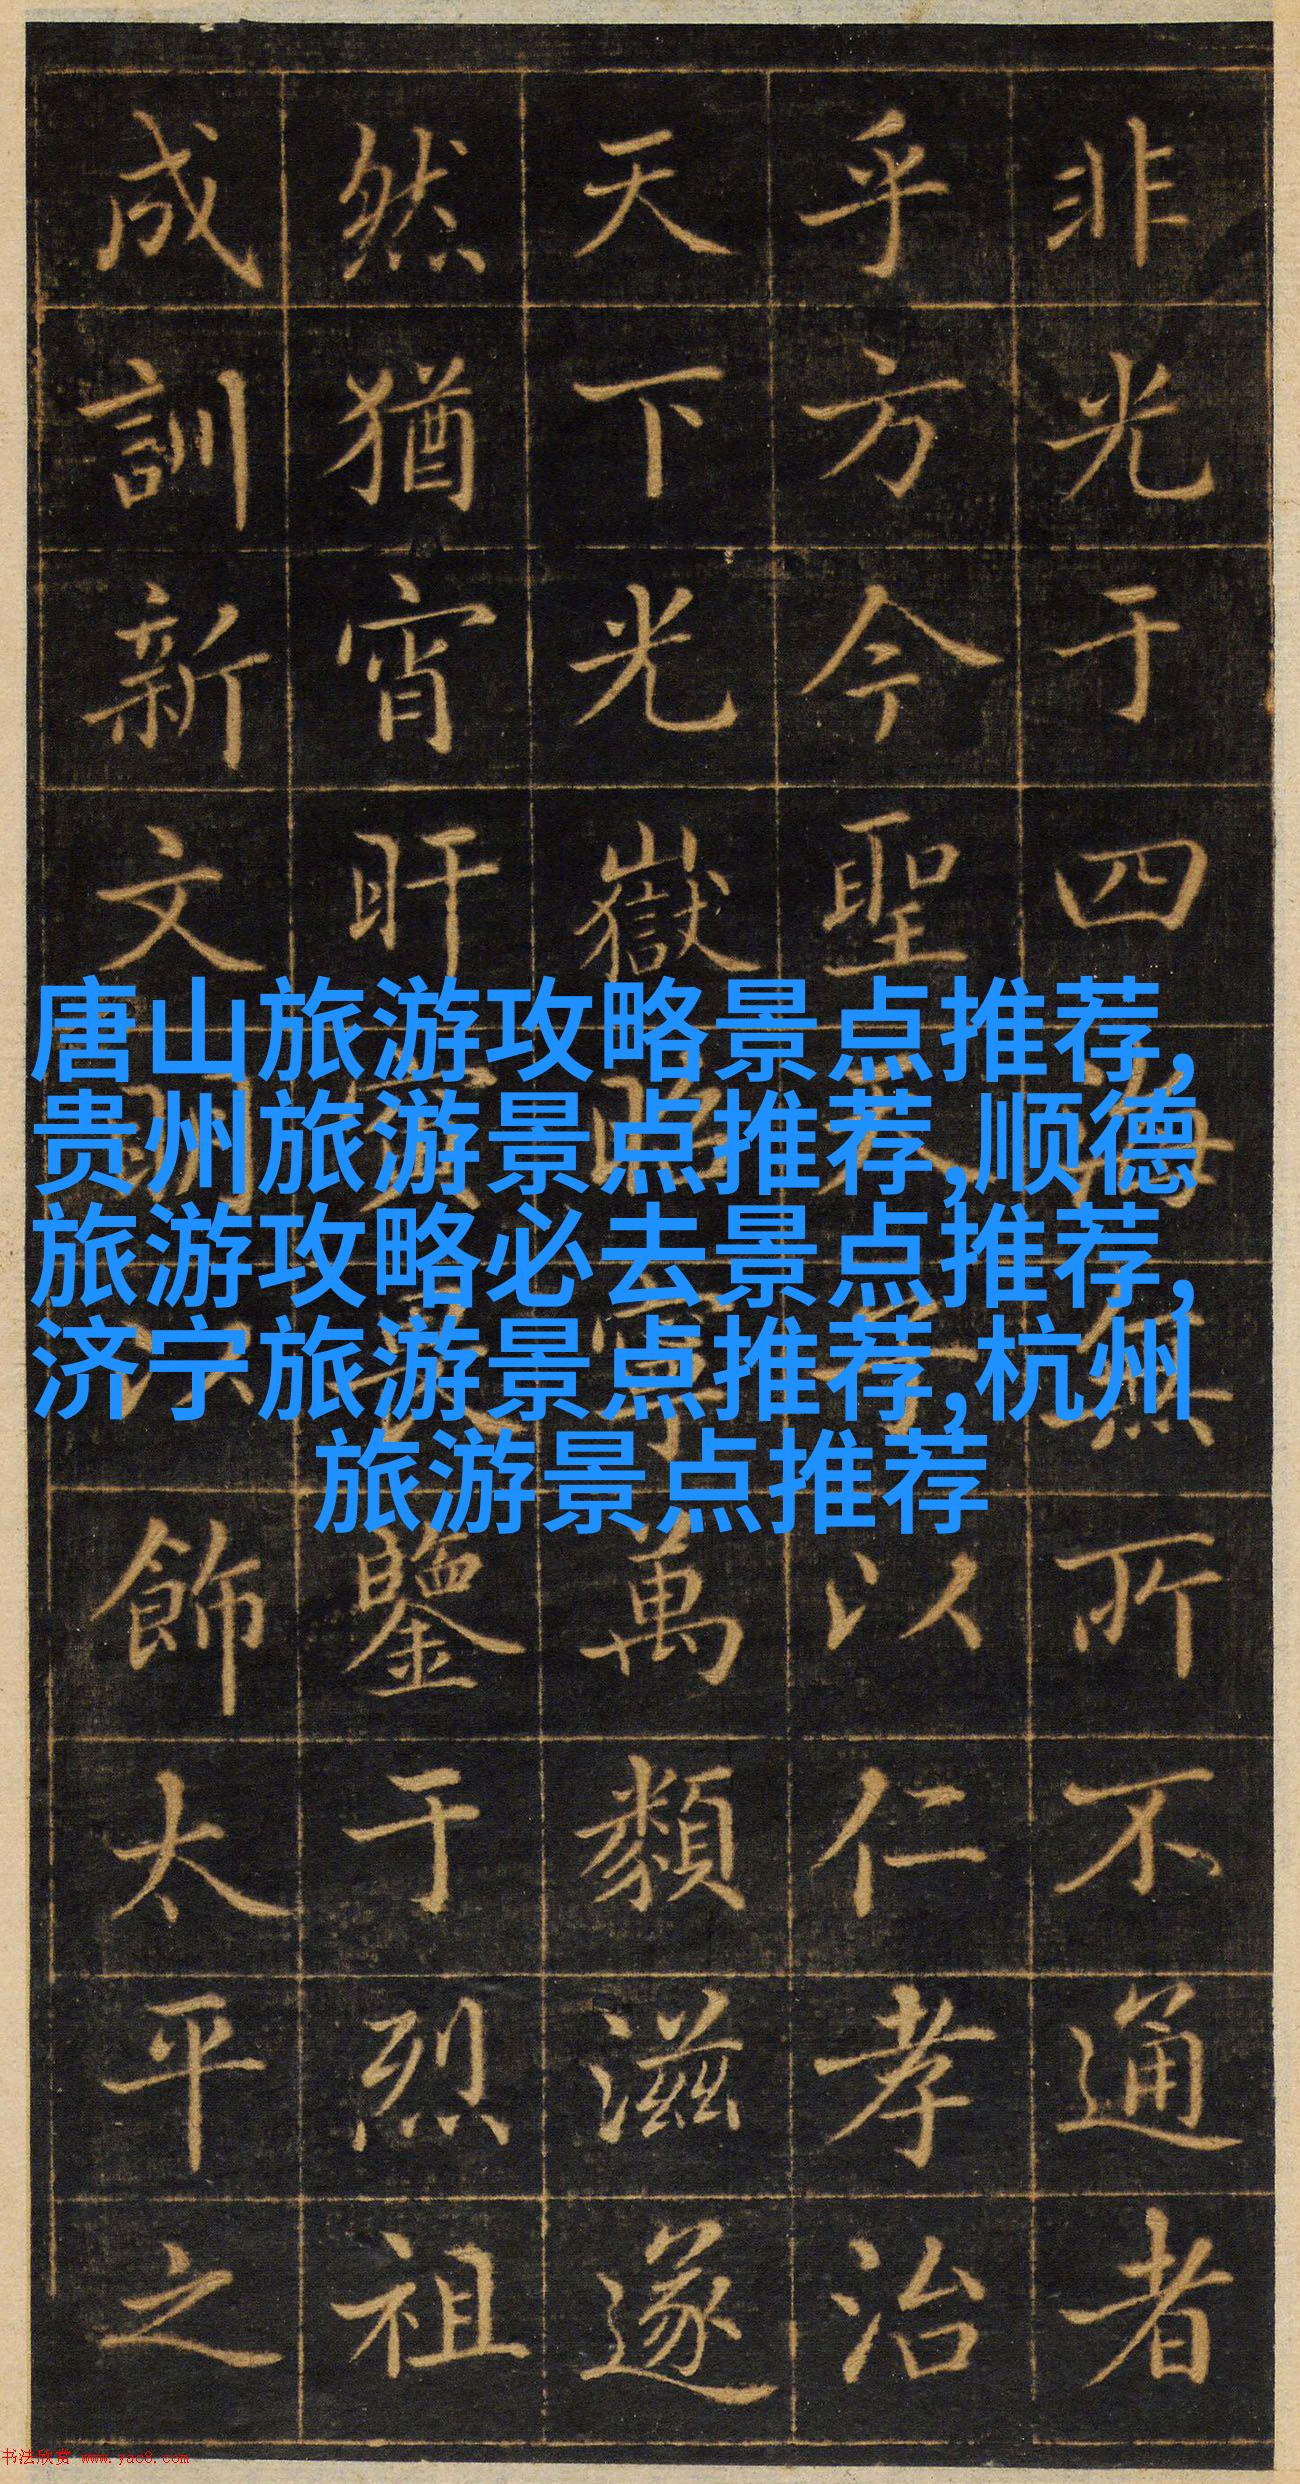 唐山旅游攻略景点推荐,
贵州旅游景点推荐,顺德
旅游攻略必去景点推荐,
济宁旅游景点推荐,杭州
旅游景点推荐
非光于四海無所不通者
乎方今聖以仁孝治
天下光嶽寧萬類滋遂
然猶宵旰鑒于烈祖
成訓新文以飾太平之
书法欣赏 www.yac8.com